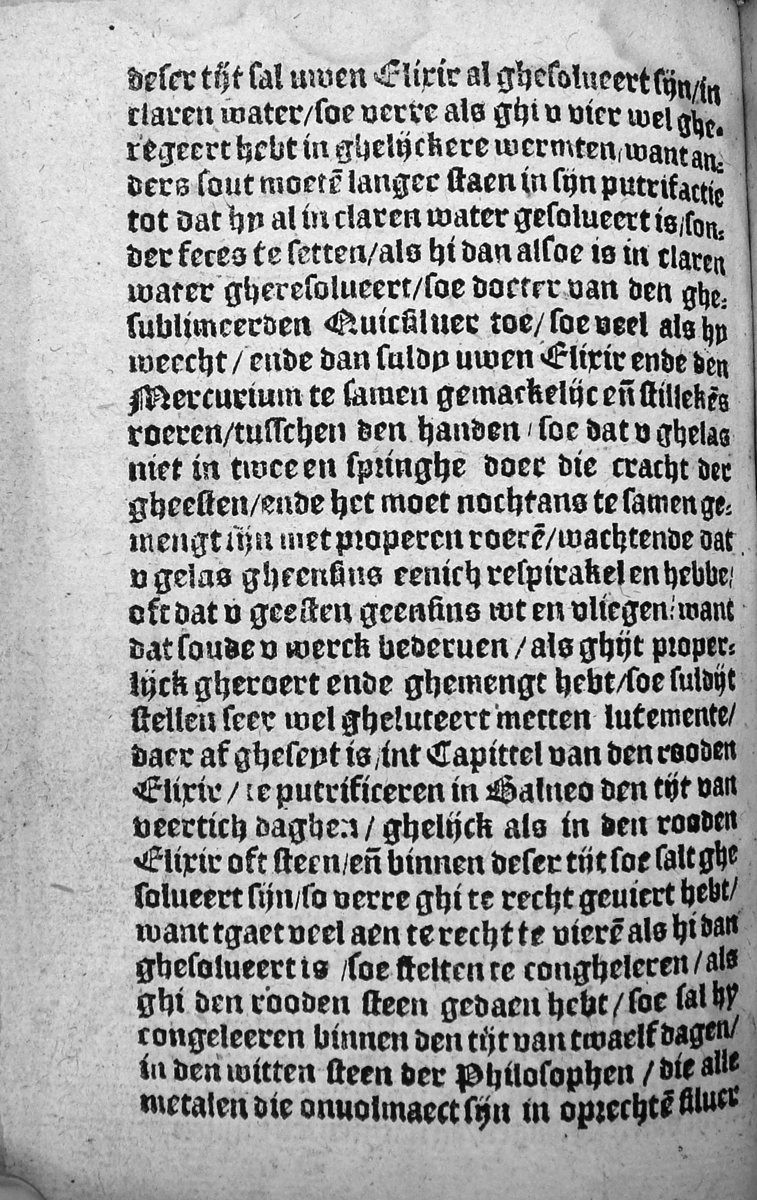 deser tijt sal uwen Elixir al ghesolueert sijn/in
claren water/soe verre als ghi v vier wel ghe-
regeert hebt in ghelijckere wermten/want an-
ders sout moetē langer staen in sijn putrifactie
tot dat hy al in claren water gesolueert is/son-
der feces te setten/als hi dan alsoe is in claren
water gheresolueert/soe doetter van den ghe-
sublimeerden Quicksiluer toe/soe veel als hy
weecht/ende dan suldy uwen Elixir ende den
Mercurium te samen gemackelijc eñ stillekēs
roeren/tusschen den handen/soe dat v ghelas
niet in tweeen springhe doer die cracht der
gheesten/ende het moet nochtans te samen ge-
mengt sijn met properen roerē/wachtende dat
v gelas gheensins eenich respirakel en hebbe/
oft dat v geesten geensins wt en vliegen: want
dat soude v werck bederuen/als ghijt proper-
lijck gheroert ende ghemengt hebt/soe suldijt
stellen seer wel gheluteert metten lutemente/
daer af gheseyt is/int Capittel van den rooden
Elixir/te putrificeren in Balneo den tijt van
veertich daghen/ghelijck als in den rooden
Elixir oft steen/eñ binnen deser tijt soe salt ghe
solueert sijn/so verre ghi te recht geuiert hebt/
want tgaet veel aen te recht te vierē als hi dan
ghesolueert is/soe stelten te congheleren/als
ghi den rooden steen gedaen hebt/soe sal hy
congeleeren binnen den tijt van twaelf dagen/
in den witten steen der Philosophen/die alle
metalen die onuolmaect sijn in oprechtē siluer